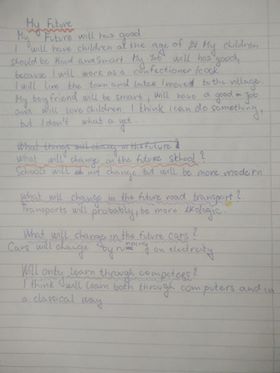 My Future
My Future will has good
I will have children at the age of My children
should be kind and smart. My job will has good,
because I will work as a confectioner/cook
I will live the town and later I moved to the village
My boyfriend will be smart, will have a good job
and will love children I think I can do something,
but I don't what a yet.
What things will change in the future?
What will change in the future school?
Schools will not change but will be more modern
What will change in the future road transport?
Transports will probably, be more ekologic.
What will change in the future cars?
Cars will change by running on electricity
Will only learn through computers?
I think will learn both through computers and in
a classical way